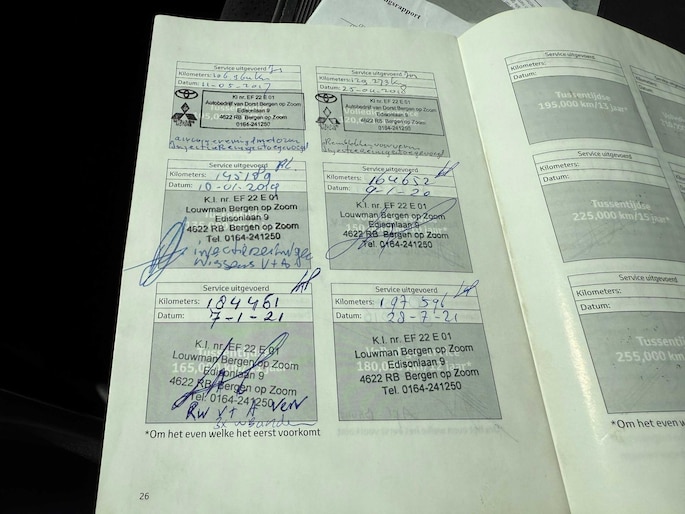 gsrapport
Service uitgevoerd
Kilometers:
Datum: 11-05-2017
KI nr. EF 22 E 01
Autobedrijf van Dorst Bergen op Zoom
Edisonlaan 9
4622 RB Bergen op Zoom
0164-241250
Service uitgevoerd
Kilometers:
Datum: 25-04-2018
KI nr. EF 22 E 01
Autobedrijf van Dorst Bergen op Zoom
Edisonlaan 9
4622 RB Bergen op Zoom
0164-241250
Service uitgevoerd
Kilometers: 145189
Datum: 10-01-2019
K.I. nr. EF 22 E 01
Louwman Bergen op Zoom
Edisonlaan 9
4622 RB Bergen op Zoom
Tel. 0164-241250
wissens V+A
Service uitgevoerd
Kilometers: 164652
Datum: 9-1-20
K.I. nr. EF 22 E 01
Louwman Bergen op Zoom
Edisonlaan 9
4622 RB Bergen op Zoom
Tel. 0164-241250
Service uitgevoerd
Kilometers: 184461
Datum: 7-1-21
K.I. nr. EF 22 E 01
Louwman Bergen op Zoom
Edisonlaan 9
165,000
4622 RB Bergen op Zoom
Tel. 0164-241250
RW V+A verv
Service uitgevoerd
Kilometers: 197 596
Datum: 28-7-21
K.I. nr. EF 22 E 01
Louwman Bergen op Zoom
Edisonlaan 9
180,0
4622 RB Bergen op Zoom
Tel. 0164-241250
*Om het even welke het eerst voorkomt
26
Service uitgevoerd
Kilometers:
Datum:
Tussentijdse
195,000 km/13 jaar*
Service uitgevoerd
Kilometers:
Datum:
Tussentijdse
225,000 km/15 jaar*
Service uitgevoerd
Kilometers:
Datum:
Tussentijdse
255,000 km/
*Om het even